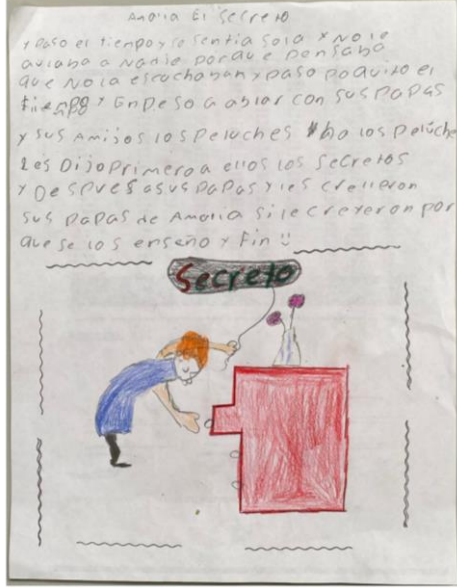 Amalia El Secreto
y paso el tiempo y se sentia Sola y No le
avlaba a Nadie porque Pensaba
que No la escuchaban y paso poquito el
tiempo y Enpeso a ablar con sus papas
y sus Amijos los peluches a los peluche
Les Dijo primero a ellos los Secretos
y Despues a sus papas y les crelleron
sus papas de Amalia si le creyeron por
que se los enseño y Fin
Secreto